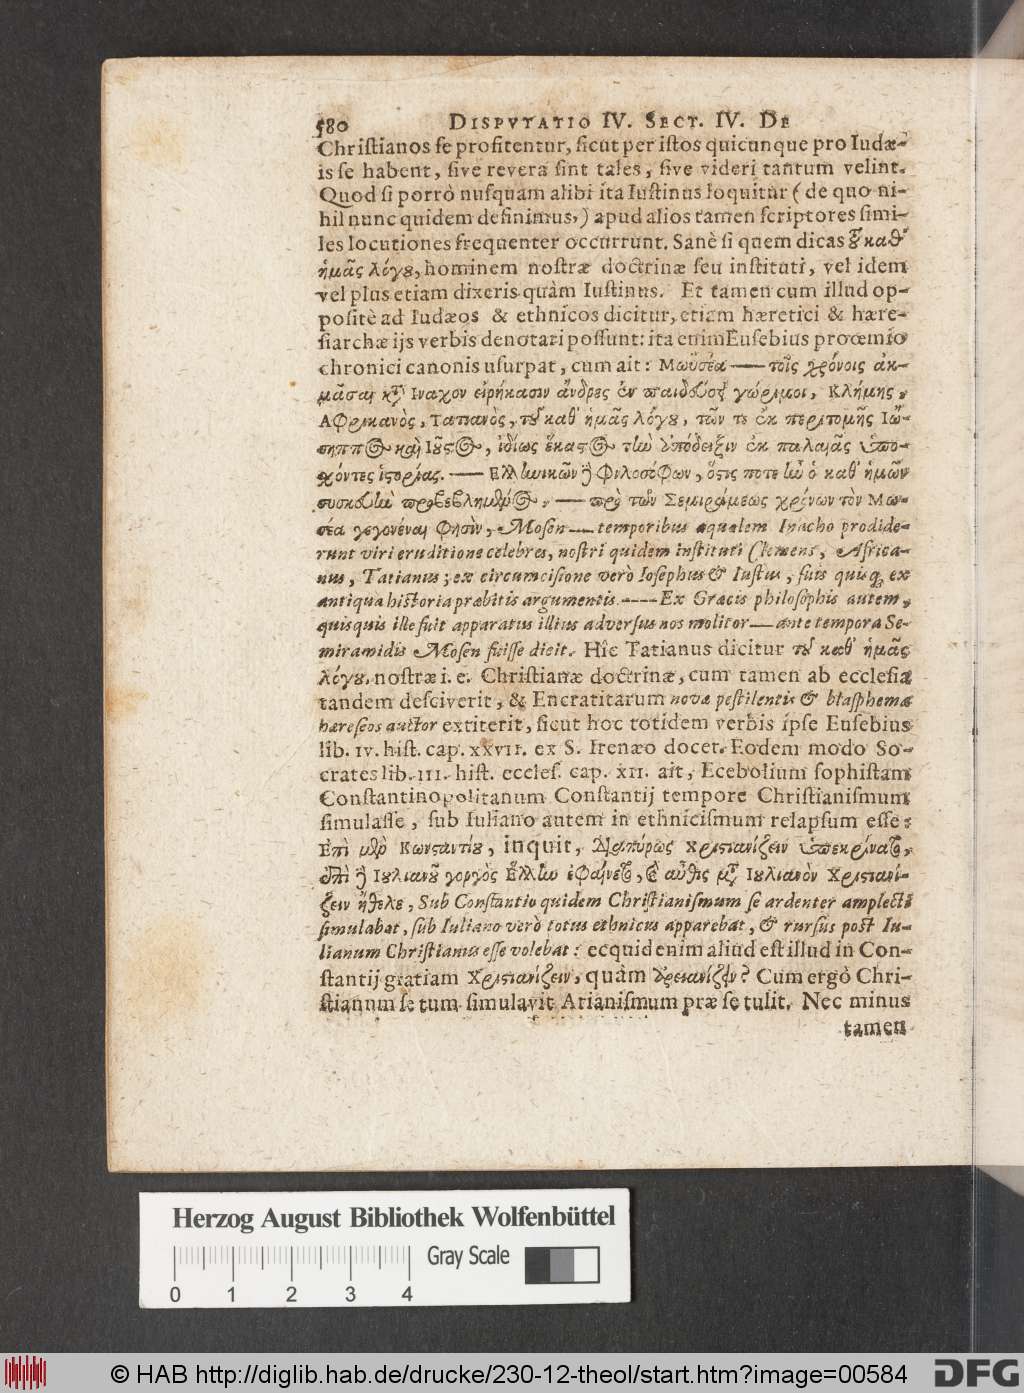 580 DISPVTATIO IV. SECT. IV. DE
Chriſtianos ſe profitentur, ſicut per iſtos quicunque pro Iudæ-
is ſe habent, ſive reverà ſint tales, ſive videri tantum velint.
Quod ſi porrò nuſquam alibi ita Iuſtinus loquitur ( de quo ni-
hil nunc quidem definimus,) apud alios tamen ſcriptores ſimi-
les locutiones frequenter occurrunt. Sanè ſi quem dicas τȣ͂ καθ'
ἡμᾶς λόγȣ, hominem noſtræ doctrinæ ſeu inſtituti, vel idem
vel plus etiam dixeris quàm Iuſtinus. Et tamen cum illud op-
poſitè ad Iudæos & ethnicos dicitur, etiam hæretici & hære-
ſiarchæ ijs verbis denotari poſſunt: ita enim Euſebius proœmio
chronici canonis uſurpat, cum ait: Μωϋσέα — τοῖς χρόνοις ἀκ-
μᾶσαι κτ' Ιναχον εἰρήκασιν ἄνδρες ἐν παιδεύσει γνώριμοι, Κλήμης,
Αφρικανὸς, Τατιανὸς, τȣ͂ καθ' ἡμᾶς λόγȣ, τῶν τε ἐκ περιτομῆς Ιώ-
σηππος καὶ Ιȣ͂στος, ἰδίως ἕκαστος τὴν ὑπόδειξιν ἐκ παλαιᾶς ὑπο-
χόντες ἱστορίας. — Ελληνικῶν δὲ φιλοσόφων, ὅστις ποτε ἦν ὁ καθ' ἡμῶν
συσκευὴν προβεβλημένος, — πρὸ τῶν Σεμιράμεως χρόνων τὸν Μω-
σέα γεγονέναι φησὶν, Moſen — temporibus æqualem Inacho prodide-
runt viri eruditione celebres, noſtri quidem inſtituti Clemens, Africa-
nus, Tatianus; ex circumciſione verò Ioſephus & Iuſtus, ſuis quiſq; ex
antiqua hiſtoria præbitis argumentis. ---- Ex Græcis philoſophis autem,
quisquis ille fuit apparatus illius adverſus nos molitor — ante tempora Se-
miramidis Moſen fuiſſe dicit. Hîc Tatianus dicitur τȣ͂ καθ' ἡμᾶς
λόγȣ, noſtræ i. e. Chriſtianæ doctrinæ, cum tamen ab eccleſia
tandem deſciverit, & Encratitarum novæ peſtilentis & blaſphemæ
hæreſeos auctor extiterit, ſicut hoc totidem verbis ipſe Euſebius
lib. IV. hiſt. cap. XXVII. ex S. Irenæo docet. Eodem modo So-
crates lib. III. hiſt. eccleſ. cap. XII. ait, Ecebolium ſophiſtam
Conſtantinopolitanum Conſtantij tempore Chriſtianiſmum
ſimulaſſe, ſub Iuliano autem in ethniciſmum relapſum eſſe:
Επὶ μὲν Κωνσταντίȣ, inquit, διαπύρως χριστιανίζειν ὑπεκρίνατο,
ἐπὶ δὲ Ιȣλιανȣ͂ γοργὸς Ελλην ἐφαίνετο, καὶ αὖθις μτ' Ιȣλιανὸν Χριστιανί-
ζειν ἤθελε, Sub Conſtantio quidem Chriſtianiſmum ſe ardenter amplecti
ſimulabat, ſub Iuliano verò totus ethnicus apparebat, & rurſus poſt Iu-
lianum Chriſtianus eſſe volebat: ecquid enim aliud eſt illud in Con-
ſtantij gratiam Χριστιανίζειν, quàm Ἀρειανίζειν? Cum ergò Chri-
ſtianum ſe tum ſimulavit Arianiſmum præ ſe tulit. Nec minus
tamen
Herzog August Bibliothek Wolfenbüttel
Gray Scale
0 1 2 3 4
© HAB http://diglib.hab.de/drucke/230-12-theol/start.htm?image=00584
DFG